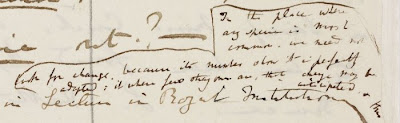 In the place where
any species is most
common. we need not
look for change, because its numbers show it is perfectly
adapted; it where few they are, that change may be
anticipated
out.?—
in Lecture in Royal Institution